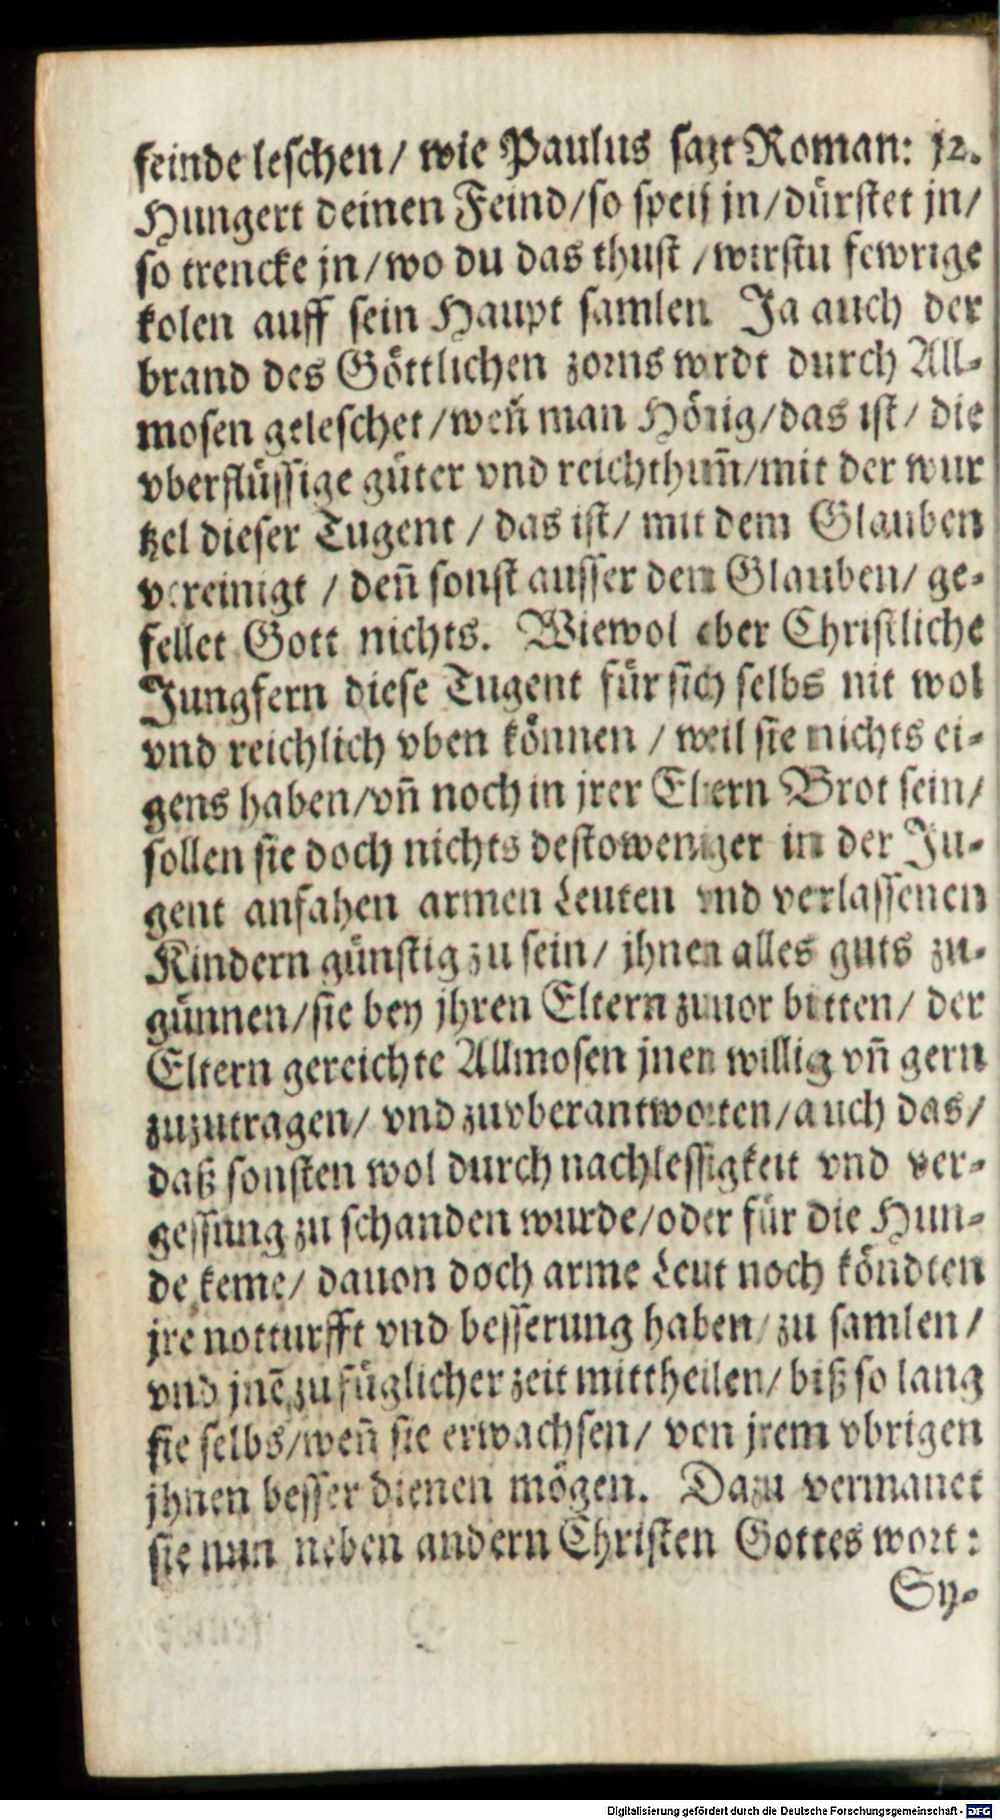 feinde leschen/ wie Paulus sagt Roman: 12.
Hungert deinen Feind/so speiß jn/dürstet jn/
so trencke jn/wo du das thust /wirstu fewrige
kolen auff sein Haupt samlen. Ja auch der
brand des Göttlichen zorns wirdt durch All-
mosen geleschet/weñ man Hönig/das ist/ die
vberflüssige güter vnd reichthum̃/mit der wur
tzel dieser Tugent / das ist/ mit dem Glauben
vereinigt / deñ sonst ausser dem Glauben/ ge-
fellet Gott nichts. Wiewol aber Christliche
Jungfern diese Tugent für sich selbs nit wol
vnd reichlich vben können / weil sie nichts ei-
gens haben/vñ noch in jrer Eltern Brot sein/
sollen sie doch nichts destoweniger in der Ju-
gent anfahen armen Leuten vnd verlassenen
Kindern günstig zu sein/ jhnen alles guts zu-
günnen/sie bey jhren Eltern zuuor bitten/ der
Eltern gereichte Allmosen jnen willig vñ gern
zuzutragen/ vnd zuvberantworten/auch das/
daß sonsten wol durch nachlessigkeit vnd ver-
gessung zu schanden wurde/oder für die Hun-
de keme/ dauon doch arme Leut noch köndten
jre notturfft vnd besserung haben/ zu samlen/
vnd jnẽ zu füglicher zeit mittheilen/ biß so lang
sie selbs/weñ sie erwachsen/ von jrem vbrigen
jhnen besser dienen mögen. Dazu vermanet
sie nun neben andern Christen Gottes wort:
Sy-
Digitalisierung gefördert durch die Deutsche Forschungsgemeinschaft - DFG